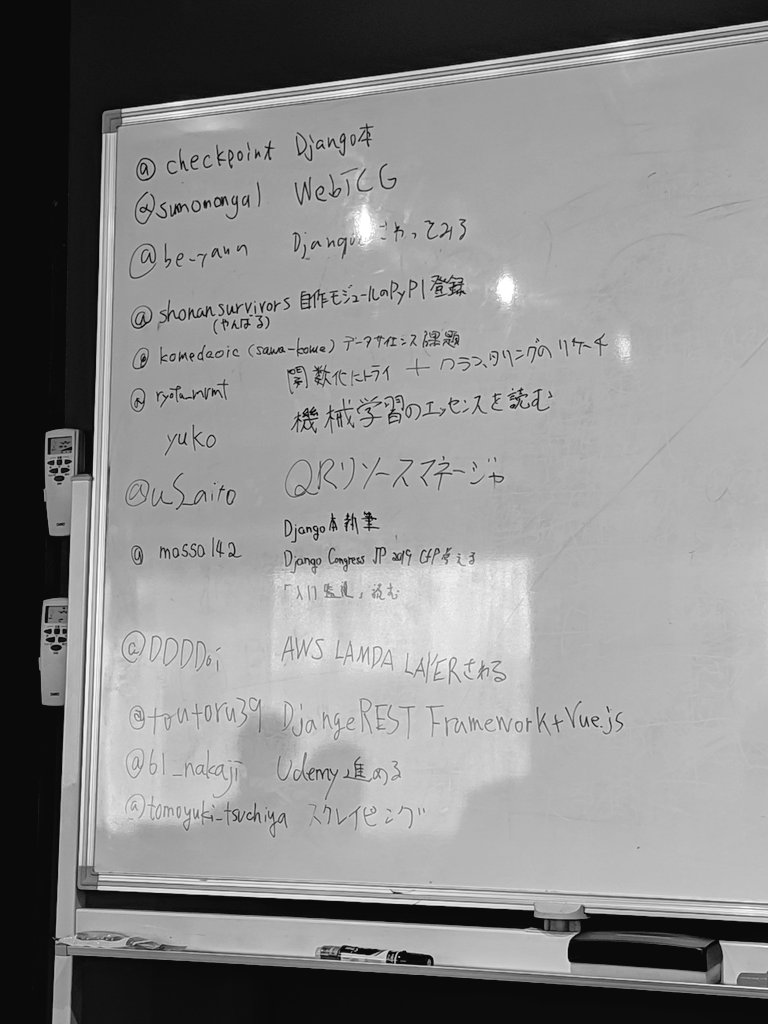 @ checkpoint Django本
@sumomonga1 WebTCG
@be-yann Django やってみる
@ shonansurvivors 自作モジュールのPyPI登録
(やんばる)
@ komedaoic (sawa-kome) データサイエンス課題
@ ryota_nvmt 関数化にトライ + クラスタリングのリサーチ
yuko 機械学習のエッセンスを読む
@uSaito QRリソースマネージャ
Django本執筆
@ massa142 Django Congress JP 2019 CfP考える
「入門 監視」読む
@DDDDoi AWS LAMDA LAYERさわる
@toutoru39 Django REST Framework+Vue.js
@61_nakaji Udemy進める
@tomoyuki_tsuchiya スクレイピング